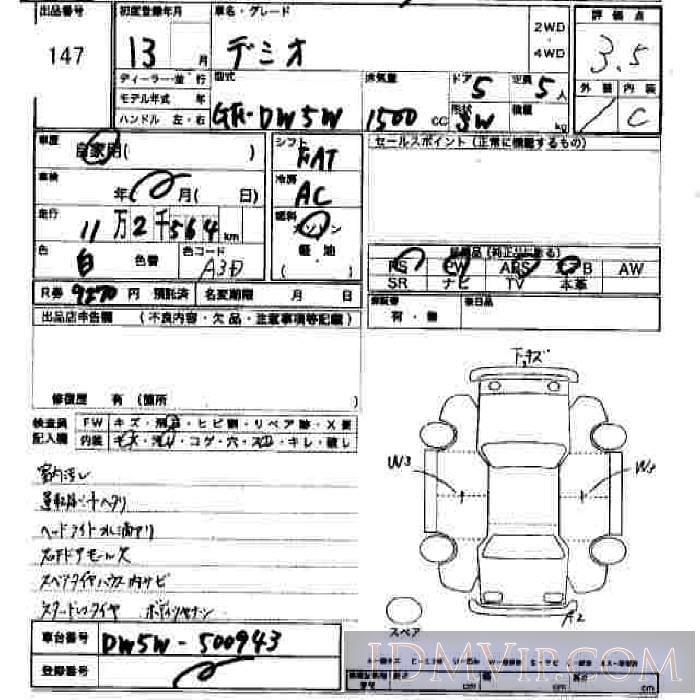 出品番号 初度登録年月 車名・グレード 評価点
147 13 月 デミオ 2WD 3.5
4WD
ディーラー・並行 型式 排気量 ドア 定員 外装 内装
モデル年式 年 GH-DW5W 1500 CC 5 5人 C
ハンドル 左・右 形状 SW 積載 kg
車歴 自家用( ) シフト FAT セールスポイント(正常に機能するもの)
車検 年 月( 日) 冷房 AC
走行 11万2千564km 燃料 ガソリン
軽・油
色 白 色替 色コード A3D ( )
PS PW ABS エアB AW
SR ナビ TV 本革
R券 9270 円 預託済 名変期限 月 日
保証書 有・無 後日品
出品店申告欄 (不良内容・欠品・注意事項等記載)
修復歴 有(箇所 )
検査員記入欄 FW キズ・飛石・ヒビ割・リペア跡・X要
内装 キズ・汚れ・コゲ・穴・スレ・キレ・破し
下キズ
W3
室内汚レ
運転席シートヘタリ
ヘッドライト水滴アリ
スペアタイヤハウス内サビ
スタッドレスタイヤ
A2
スペア
車台番号 DW5W-500943
登録番号
IDMVIP.COM